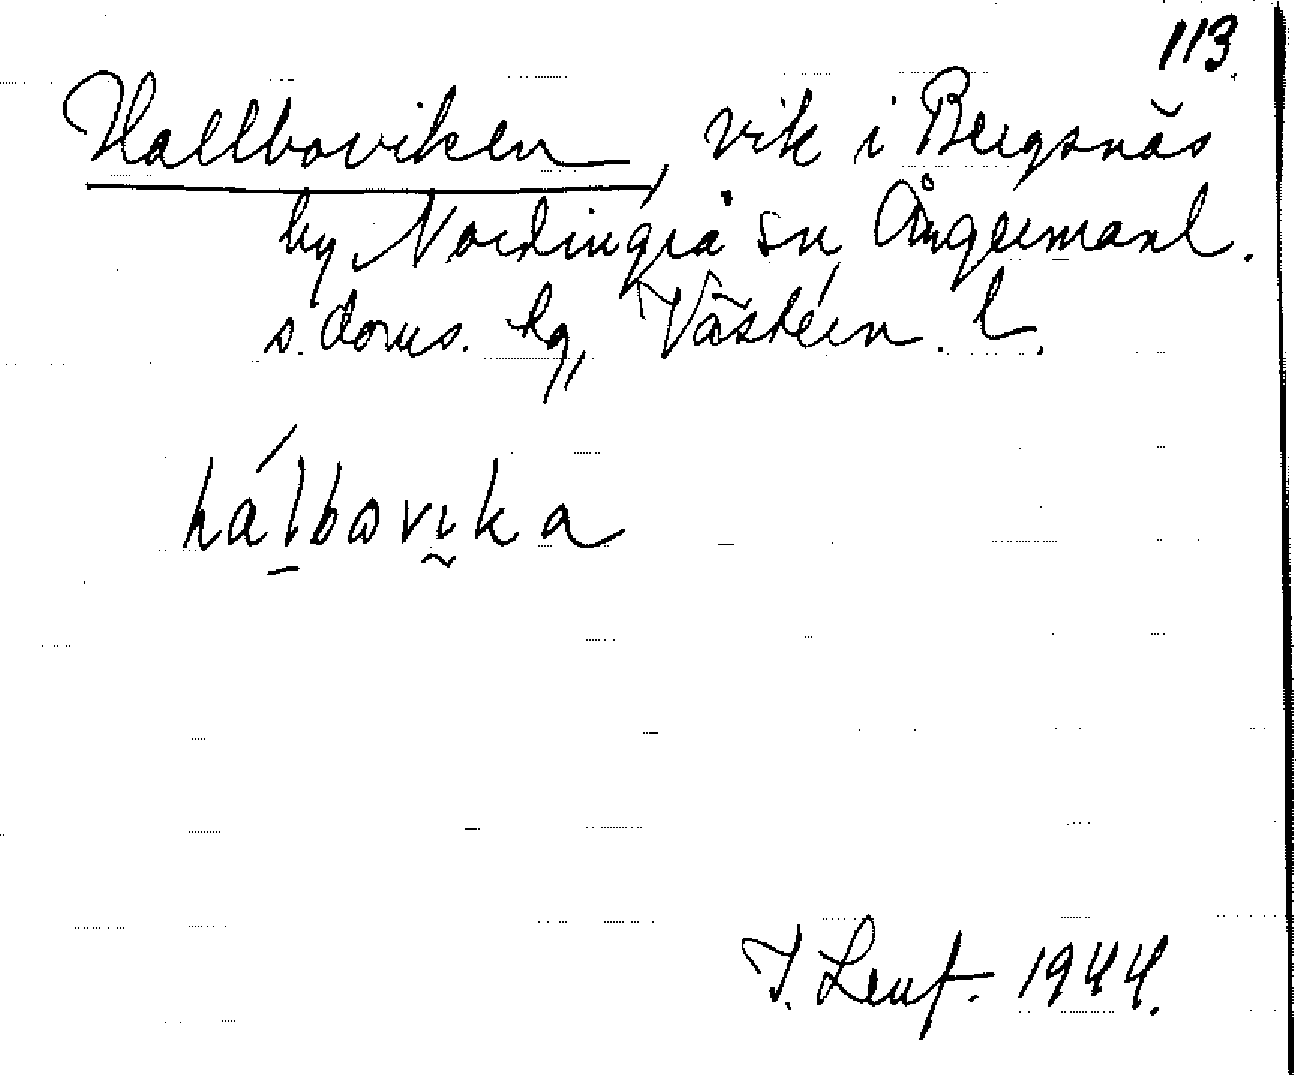 113.
Hallboviken, vik i Bergsnäs
by Nordingrå sn Ångermanl.
s. doms. hg, Västern. l.
hálbovika
T. Leuf. 1944.